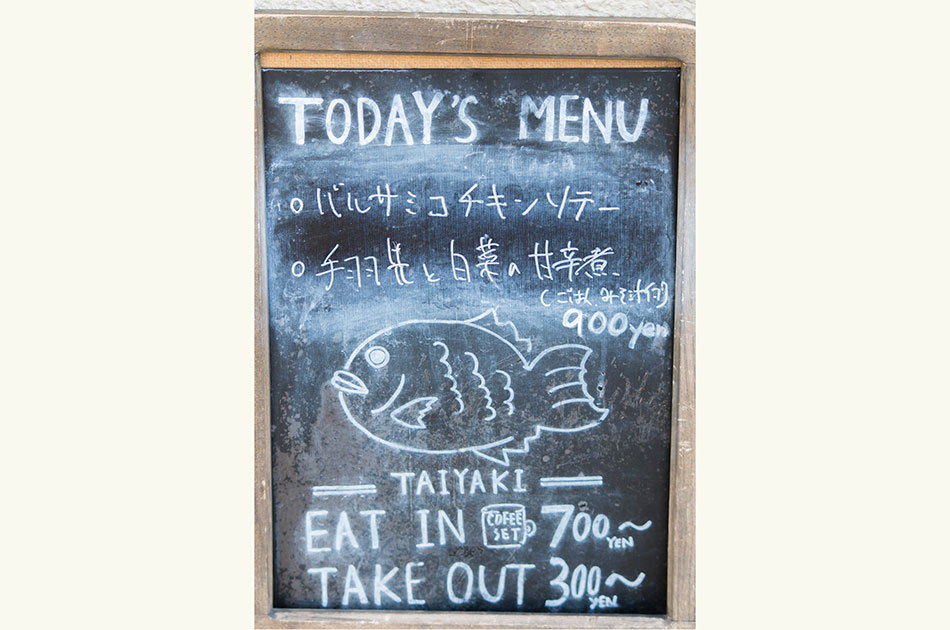 TODAY'S MENU
○ バルサミコチキンソテー
○ 手羽先と白菜の甘辛煮
(ごはん、みそ汁付)
900yen
TAIYAKI
EAT IN COFEE SET 700 YEN~
TAKE OUT 300 YEN~